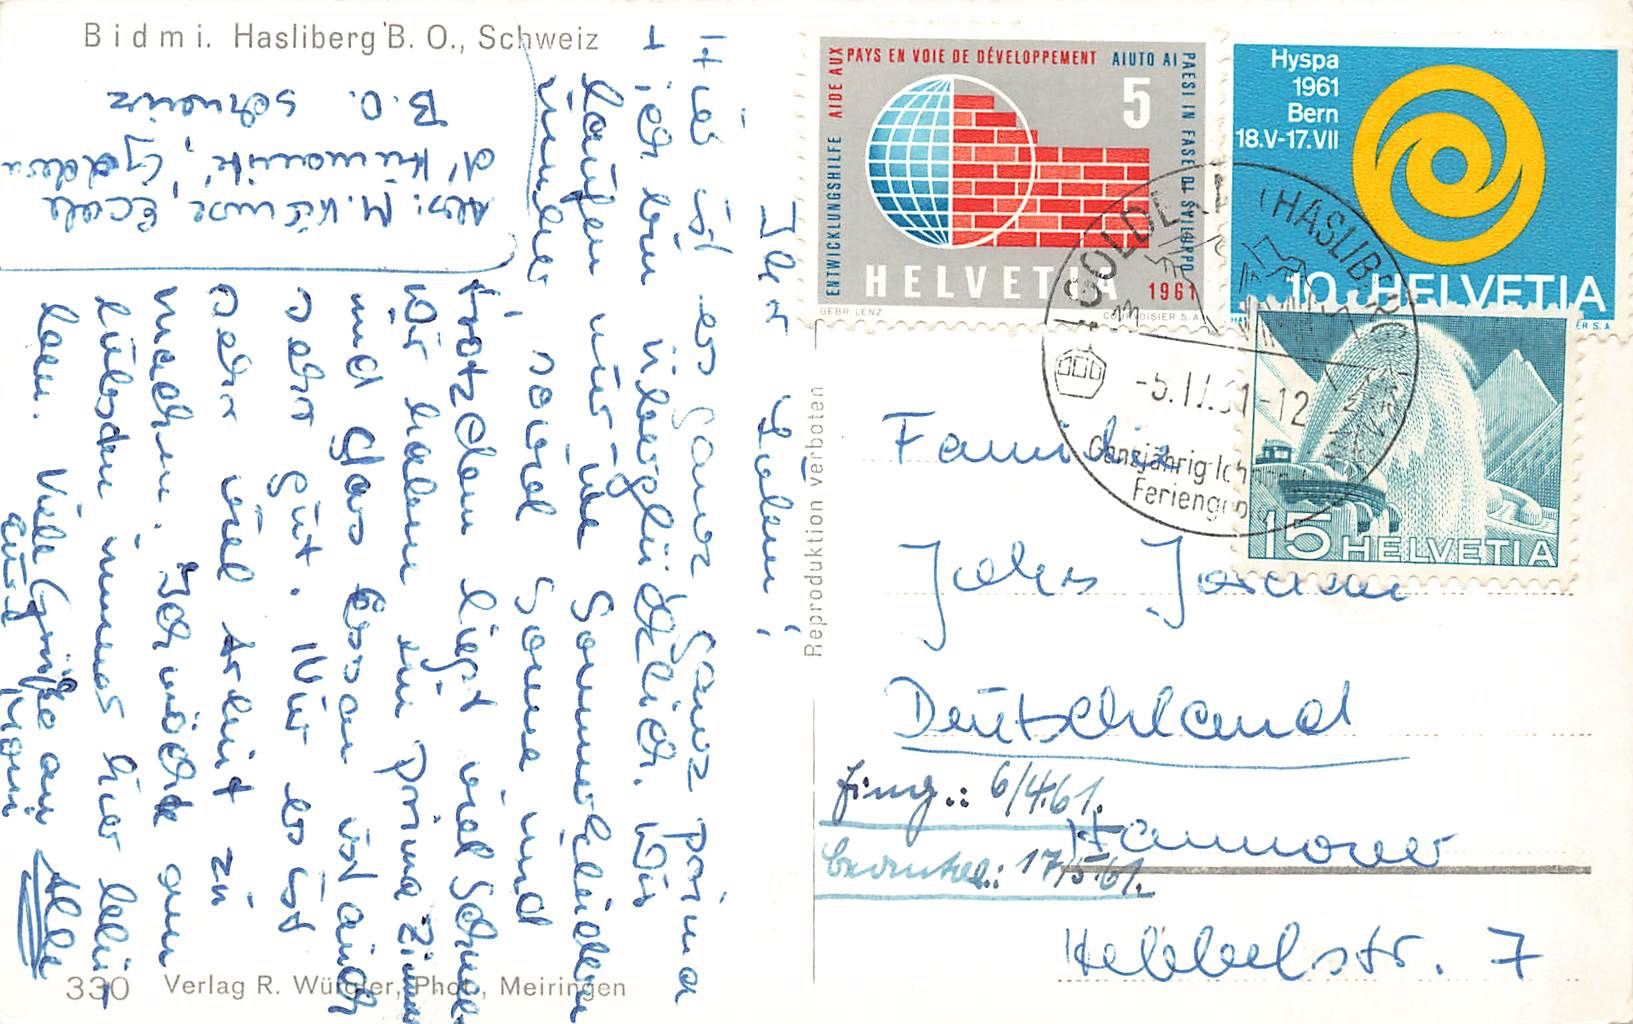 Bidmi. Hasliberg B. O., Schweiz
Abs: M.
d'Humanité, Goldern
B.O. Schweiz
Ihr Lieben!
Hier ist es ganz, ganz prima
Ich bin überglücklich. Wir
laufen nur in Sommerkleidern
immer, soviel Sonne und
trotzdem liegt viel Schnee
Wir haben ein prima Zimmer
und das Essen ist auch
sehr gut. Nur es ist
sehr viel Arbeit zu
machen. Ich möchte am
liebsten immer hier
Viele Grüße an Alle
eure
Reproduktion verboten
AIDE AUX PAYS EN VOIE DE DÉVELOPPEMENT
AIUTO AI PAESI IN FASE DI SVILUPPO
ENTWICKLUNGSHILFE
5
HELVETIA
1961
GEBR. LENZ
COURVOISIER S.A.
Hyspa
1961
Bern
18.V-17.VII
10 HELVETIA
15 HELVETIA
GOLDERN (HASLIBERG)
-12
Ganzjährig
Familie
Deutschland
6/4.61.
17/5.61.
Hannover
Hebbelstr. 7
330 Verlag R. Würgler, Phot., Meiringen